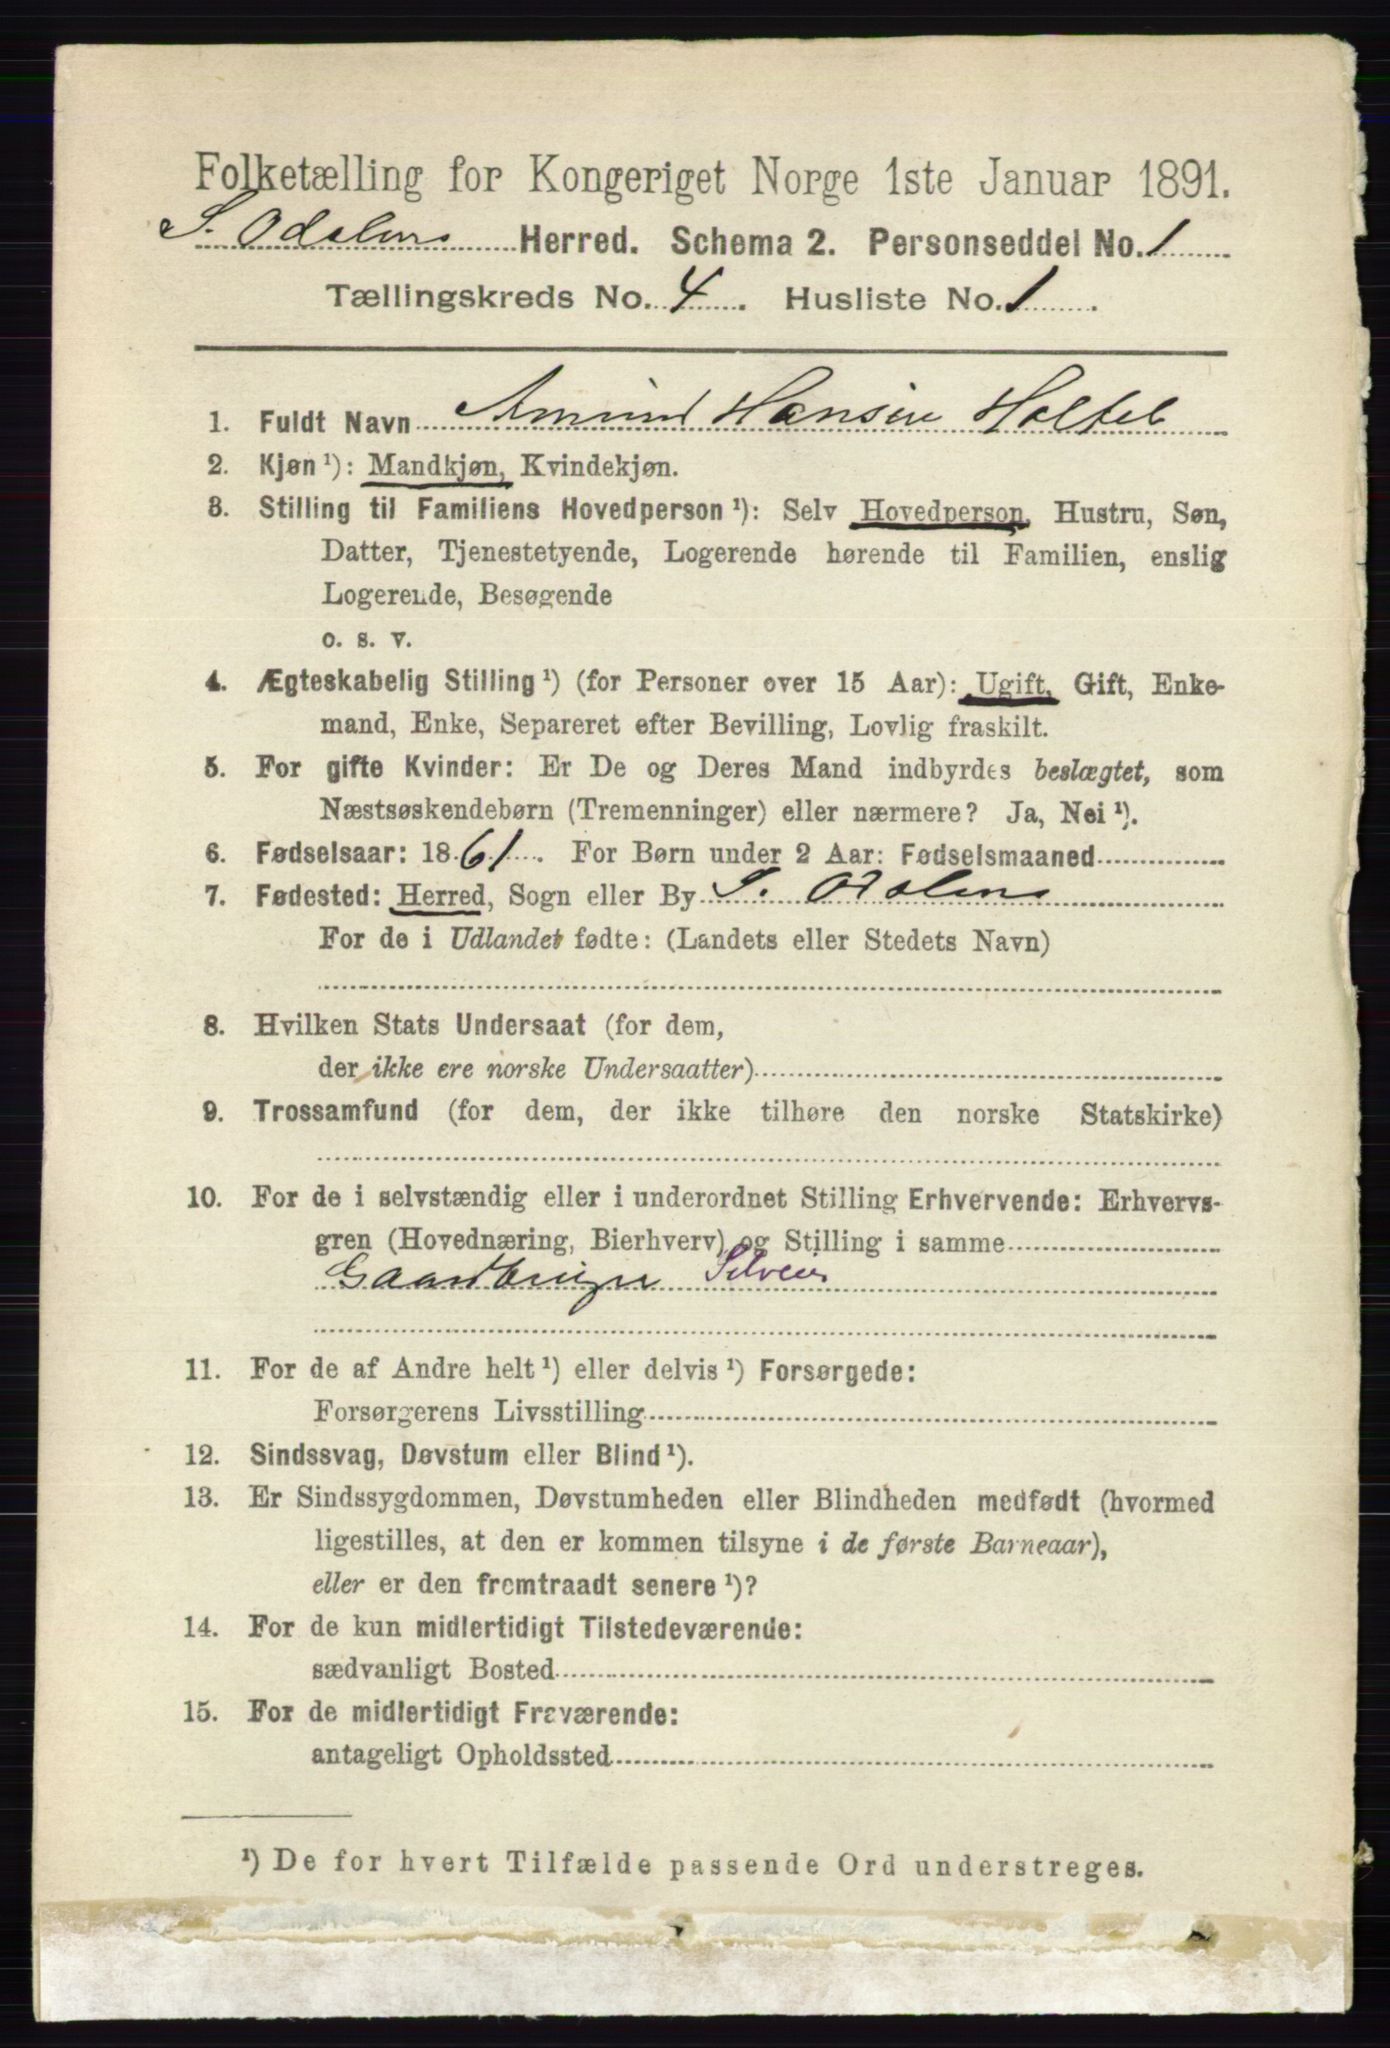 Folketælling for Kongeriget Norge 1ste Januar 1891.
S. Odalens Herred. Schema 2. Personseddel No. 1
Tællingskreds No. 4. Husliste No. 1.
1. Fuldt Navn Amund Hansen Holtet
2. Kjøn ¹): Mandkjøn, Kvindekjøn.
3. Stilling til Familiens Hovedperson ¹): Selv Hovedperson, Hustru, Søn,
Datter, Tjenestetyende, Logerende hørende til Familien, enslig
Logerende, Besøgende
o. s. v.
4. Ægteskabelig Stilling ¹) (for Personer over 15 Aar): Ugift, Gift, Enke-
mand, Enke, Separeret efter Bevilling, Lovlig fraskilt.
5. For gifte Kvinder: Er De og Deres Mand indbyrdes beslægtet, som
Næstsøskendebørn (Tremenninger) eller nærmere? Ja, Nei ¹).
6. Fødselsaar: 1861. For Børn under 2 Aar: Fødselsmaaned
7. Fødested: Herred, Sogn eller By S. Odalens
For de i Udlandet fødte: (Landets eller Stedets Navn)
8. Hvilken Stats Undersaat (for dem,
der ikke ere norske Undersaatter)
9. Trossamfund (for dem, der ikke tilhøre den norske Statskirke)
10. For de i selvstændig eller i underordnet Stilling Erhvervende: Erhvervs-
gren (Hovednæring, Bierhverv) og Stilling i samme
Gaardbruger Selveier
11. For de af Andre helt ¹) eller delvis ¹) Forsørgede:
Forsørgerens Livsstilling
12. Sindssvag, Døvstum eller Blind ¹).
13. Er Sindssygdommen, Døvstumheden eller Blindheden medfødt (hvormed
ligestilles, at den er kommen tilsyne i de første Barneaar),
eller er den fremtraadt senere ¹)?
14. For de kun midlertidigt Tilstedeværende:
sædvanligt Bosted
15. For de midlertidigt Fraværende:
antageligt Opholdssted
¹) De for hvert Tilfælde passende Ord understreges.